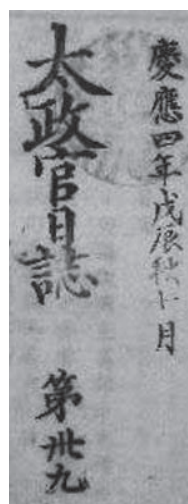 慶應四年戊辰秋七月
太政官日誌
第卅九